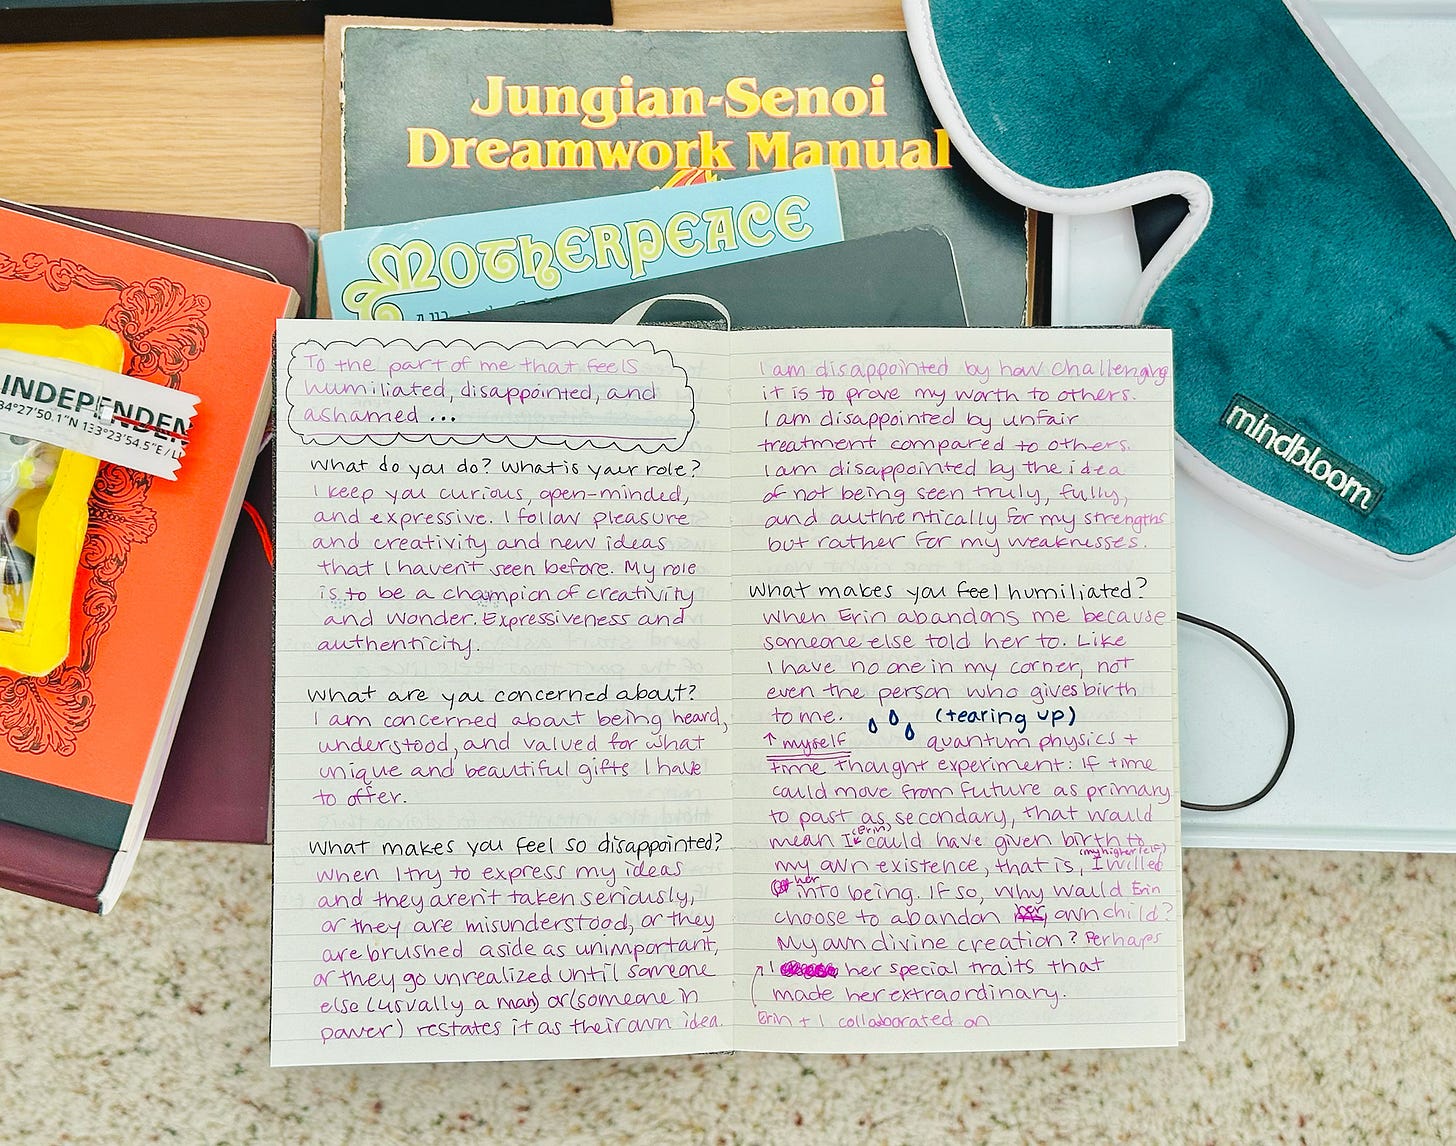 Jungian-Senoi
Dreamwork Manual
MOTHERPEACE
mindbloom
INDEPENDEN
34°27'50.1"N 133°23'54.5"E/LI
To the part of me that feels
humiliated, disappointed, and
ashamed ...
What do you do? What is your role?
I keep you curious, open-minded,
and expressive. I follow pleasure
and creativity and new ideas
that I haven't seen before. My role
is to be a champion of creativity
and wonder. Expressiveness and
authenticity.
What are you concerned about?
I am concerned about being heard,
understood, and valued for what
unique and beautiful gifts I have
to offer.
What makes you feel so disappointed?
When I try to express my ideas
and they aren't taken seriously,
or they are misunderstood, or they
are brushed aside as unimportant,
or they go unrealized until someone
else (usually a man) or (someone in
power) restates it as their own idea.
I am disappointed by how challenging
it is to prove my worth to others.
I am disappointed by unfair
treatment compared to others.
I am disappointed by the idea
of not being seen truly, fully,
and authentically for my strengths
but rather for my weaknesses.
What makes you feel humiliated?
When Erin abandons me because
someone else told her to. Like
I have no one in my corner, not
even the person who gives birth
to me. (tearing up)
↑ myself quantum physics +
time thought experiment: If time
could move from future as primary
to past as secondary, that would
mean I (Erin) could have given birth to
my own existence, that is, I (my higher self) willed
her into being. If so, why would Erin
choose to abandon her own child?
My own divine creation? Perhaps
I her special traits that
made her extraordinary.
Erin + I collaborated on